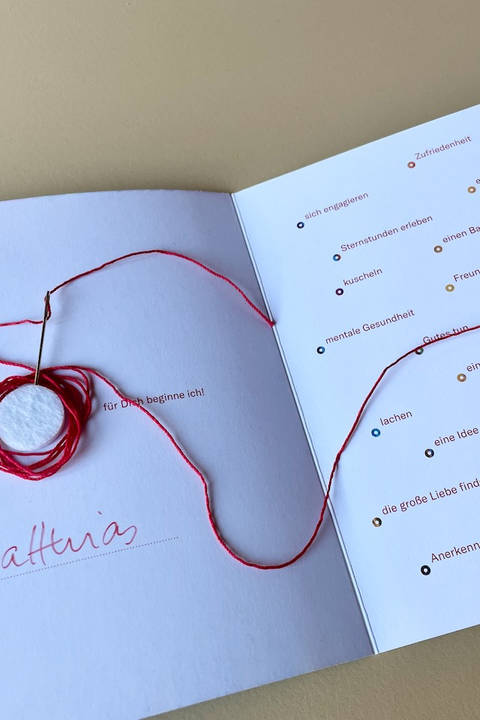 für Dich beginne ich!
Zufriedenheit
sich engagieren
Sternstunden erleben
einen
kuscheln
mentale Gesundheit
Gutes tun
lachen
eine Idee
die große Liebe